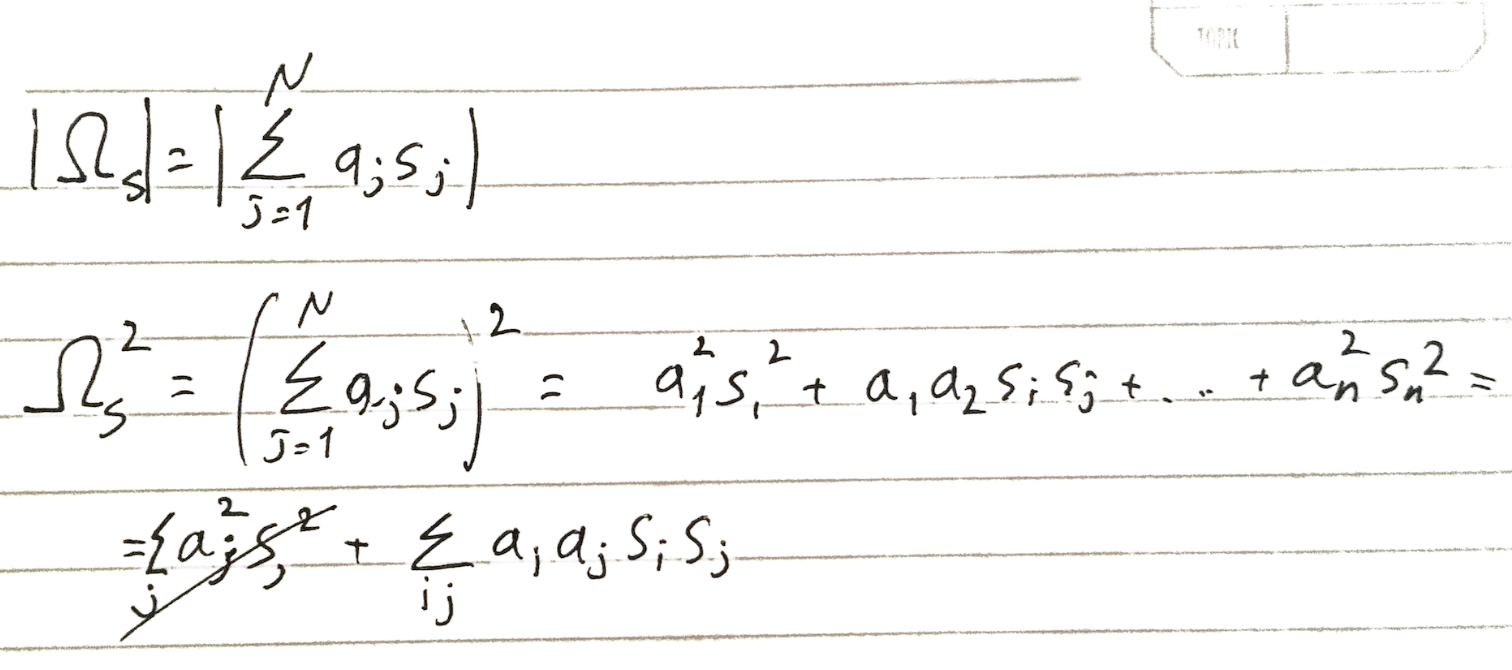 TOPIC
|Ω_s| = |∑_{j=1}^{N} a_j s_j|
Ω_s^2 = (∑_{j=1}^{N} a_j s_j)^2 = a_1^2 s_1^2 + a_1 a_2 s_i s_j + ... + a_n^2 s_n^2 =
= ∑_j a_j^2 s_j^2 + ∑_{ij} a_i a_j s_i s_j